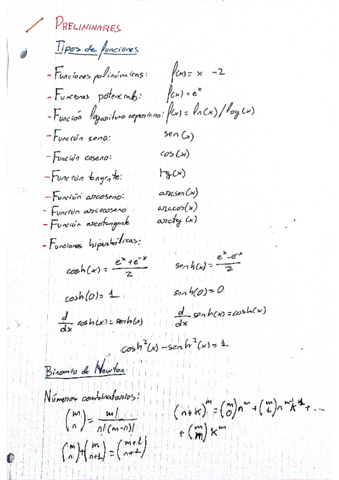 PRELIMINARES
Tipos de funciones
- Funciones polinómicas: f(x) = x - 2
- Funciones potenciales: f(x) = e^x
- Función logaritmo neperiano: f(x) = ln(x) / log(x)
- Función seno: sen(x)
- Función coseno: cos(x)
- Función tangente: tg(x)
- Función arcoseno: arcsen(x)
- Función arcocoseno arccos(x)
- Función arcotangente arctg(x)
- Funciones hiperbólicas:
cosh(x) = (e^x + e^-x)/2 senh(x) = (e^x - e^-x)/2
cosh(0) = 1 senh(0) = 0
d/dx cosh(x) = senh(x) d/dx senh(x) = cosh(x)
cosh²(x) - senh²(x) = 1
Binomio de Newton
Números combinatorios:
(m n) = m!/n!(m-n)! (n+k)^m = (m 0) n^m + (m 1) n^m-1 k^1 + ...
+ (m m) k^m
(m n) + (m n+1) = (m+1 n+1)